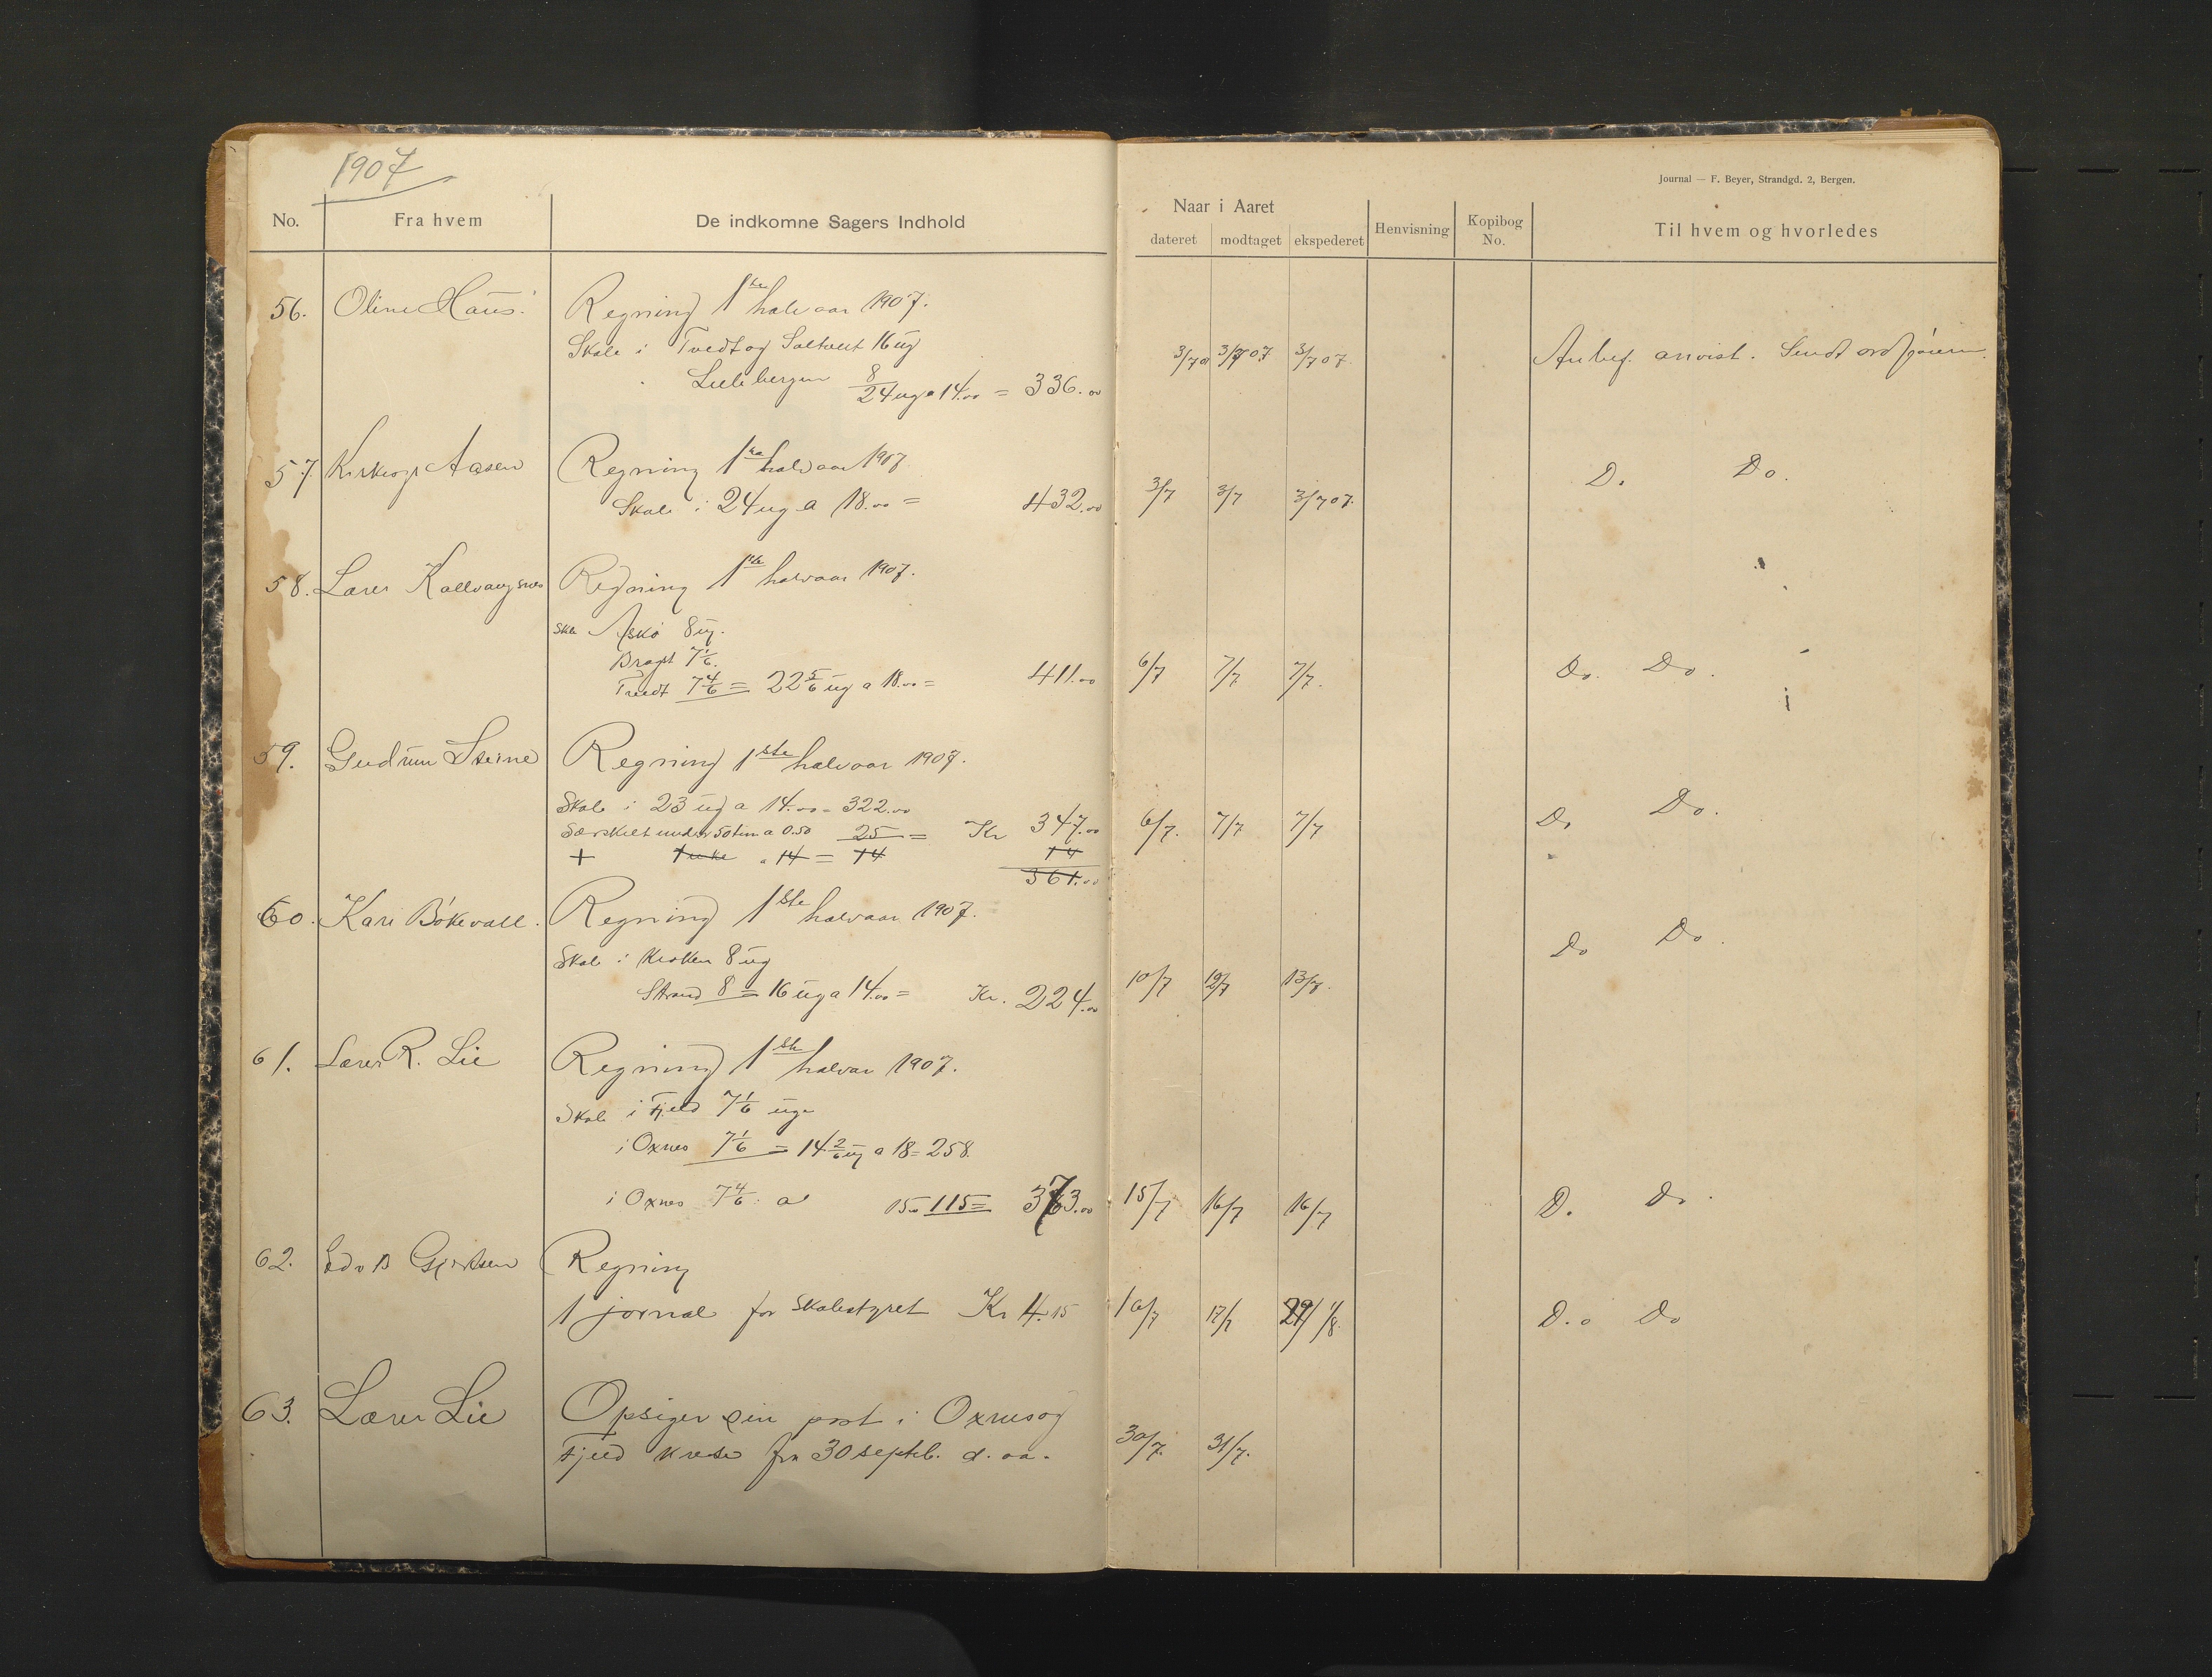 1907
Journal — F. Beyer, Strandgd. 2, Bergen.
No. Fra hvem De indkomne Sagers Indhold
Naar i Aaret
dateret modtaget ekspederet Henvisning Kopibog No. Til hvem og hvorledes
56. Oline Haus. Regning 1ste halvaar 1907.
Skole i Tvedt og 16 ug 3/7 07 3/7 07 3/7 07. Anbef. anvist. Sendt ordføieren.
8
24 ug a 14.00 = 336.00
57. Aasen Regning 1ste halvaar 1907 D. Do.
Skole i 24 ug a 18.00 = 432.00 3/7 3/7 3/7 07.
58. Lærer Regning 1ste halvaar 1907.
Skole Askø 8 ug.
7 1/6.
Tvedt 7 4/6 = 22 5/6 ug a 18.00 = 411.00 6/7 7/7 7/7. Do. Do.
59. Gudrun Steine Regning 1ste halvaar 1907.
Skole i 23 ug a 14.00 = 322.00
Særskilt under 50 tim a 0.50 25 = Kr 347.00 6/7. 7/7 7/7 Do Do.
+ 1 uke a 14 = 14 14
361.00
60. Kari Bøkevall. Regning 1ste halvaar 1907.
Skole i Kroken 8 ug Do Do.
Strand 8 = 16 ug a 14.00 = Kr. 224.00 10/7 12/7 13/7.
61. Lærer R. Lie Regning 1ste halvaar 1907.
Skole i Fjeld 7 1/6 uge
i Oxnes 7 1/6 = 14 2/6 ug a 18 = 258.
i Oxnes 7 4/6 a 15.00 115 = 373.00 15/7 16/7 16/7 D. Do.
62. Edv B Gjertsen Regning
1 jornal for Skolestyret Kr 4.15 16/7 17/7 29/ 1/8. D.o Do
63. Lærer Lie Opsiger sin post i Oxnes og
Fjeld krese fra 30 septb. d. aa. 30/7. 31/7.